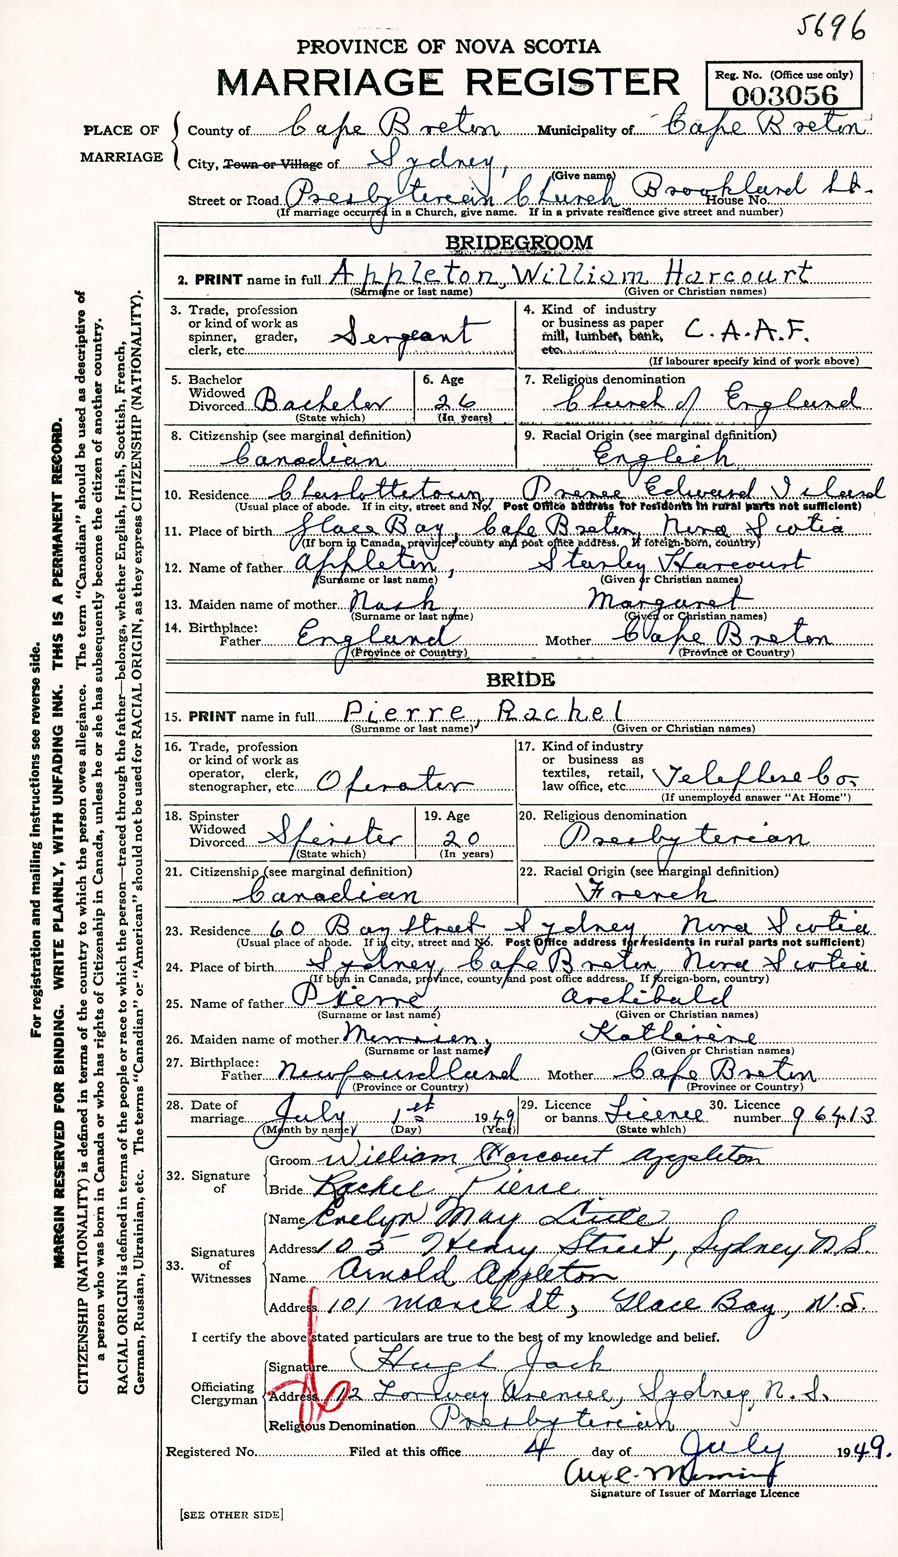 5696
PROVINCE OF NOVA SCOTIA
MARRIAGE REGISTER
Reg. No. (Office use only)
003056
PLACE OF MARRIAGE
County of Cape Breton Municipality of Cape Breton
City, Town or Village of Sydney,
(Give name)
Street or Road Presbyterein Church Brookland St. House No.
(If marriage occurred in a Church, give name. If in a private residence give street and number)
BRIDEGROOM
2. PRINT name in full Appleton, William Harcourt
(Surname or last name) (Given or Christian names)
3. Trade, profession or kind of work as spinner, grader, clerk, etc. Sergeant
4. Kind of industry or business as paper mill, lumber, bank, etc. C.A.A.F.
(If labourer specify kind of work above)
5. Bachelor Widowed Divorced Bachelor
(State which)
6. Age 26
(In years)
7. Religious denomination
Church of England
8. Citizenship (see marginal definition)
Canadian
9. Racial Origin (see marginal definition)
English
10. Residence Charlottetown, Prince Edward Island
(Usual place of abode. If in city, street and No. Post Office address for residents in rural parts not sufficient)
11. Place of birth Glace Bay, Cape Breton, Nova Scotia
(If born in Canada, province, county and post office address. If foreign-born, country)
12. Name of father Appleton, Stanley Harcourt
(Surname or last name) (Given or Christian names)
13. Maiden name of mother Nash Margaret
(Surname or last name) (Given or Christian names)
14. Birthplace: Father England Mother Cape Breton
(Province or Country) (Province or Country)
BRIDE
15. PRINT name in full Pierre, Rachel
(Surname or last name) (Given or Christian names)
16. Trade, profession or kind of work as operator, clerk, stenographer, etc. Operator
17. Kind of industry or business as textiles, retail, law office, etc. Telephone Co.
(If unemployed answer "At Home")
18. Spinster Widowed Divorced Spinster
(State which)
19. Age 20
(In years)
20. Religious denomination
Presbyterian
21. Citizenship (see marginal definition)
Canadian
22. Racial Origin (see marginal definition)
French
23. Residence 60 Bay Street Sydney Nova Scotia
(Usual place of abode. If in city, street and No. Post Office address for residents in rural parts not sufficient)
24. Place of birth Sydney, Cape Breton, Nova Scotia
(If born in Canada, province, county and post office address. If foreign-born, country)
25. Name of father Pierre, Archibald
(Surname or last name) (Given or Christian names)
26. Maiden name of mother Katherine
(Surname or last name) (Given or Christian names)
27. Birthplace: Father Newfoundland Mother Cape Breton
(Province or Country) (Province or Country)
28. Date of marriage July 1st 1949
(Month by name) (Day) (Year)
29. Licence or banns Licence
(State which)
30. Licence number 96413
32. Signature of
Groom William Harcourt Appleton
Bride Rachel Pierre
33. Signatures of Witnesses
Name Evelyn May Little
Address 105 Henry Street, Sydney N.S.
Name Arnold Appleton
Address 101 St, Glace Bay, N.S.
I certify the above stated particulars are true to the best of my knowledge and belief.
Officiating Clergyman
Signature Hugh Jack
Address 12 Sydney, N.S.
Religious Denomination Presbyterian
Registered No. Filed at this office 4 day of July 1949.
Signature of Issuer of Marriage Licence
[SEE OTHER SIDE]
For registration and mailing instructions see reverse side.
MARGIN RESERVED FOR BINDING. WRITE PLAINLY, WITH UNFADING INK. THIS IS A PERMANENT RECORD.
CITIZENSHIP (NATIONALITY) is defined in terms of the country to which the person owes allegiance. The term "Canadian" should be used as descriptive of
a person who was born in Canada or who has rights of Citizenship in Canada, unless he or she has subsequently become the citizen of another country.
RACIAL ORIGIN is defined in terms of the people or race to which the person—traced through the father—belongs, whether English, Irish, Scottish, French,
German, Russian, Ukrainian, etc. The terms "Canadian" or "American" should not be used for RACIAL ORIGIN, as they express CITIZENSHIP (NATIONALITY).